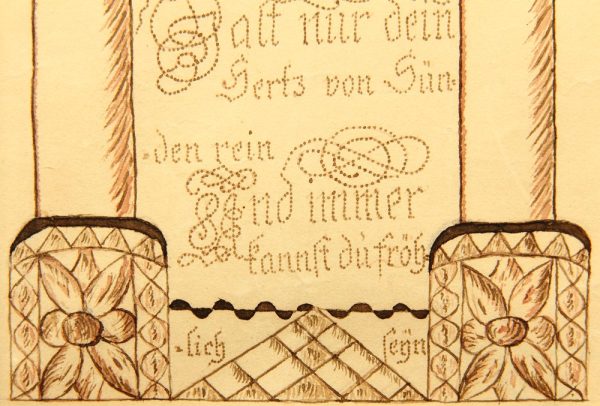 Halt nur dein
Hertz von Sün-
-den rein
Und immer
kannst dú fröh-
-lich seÿn